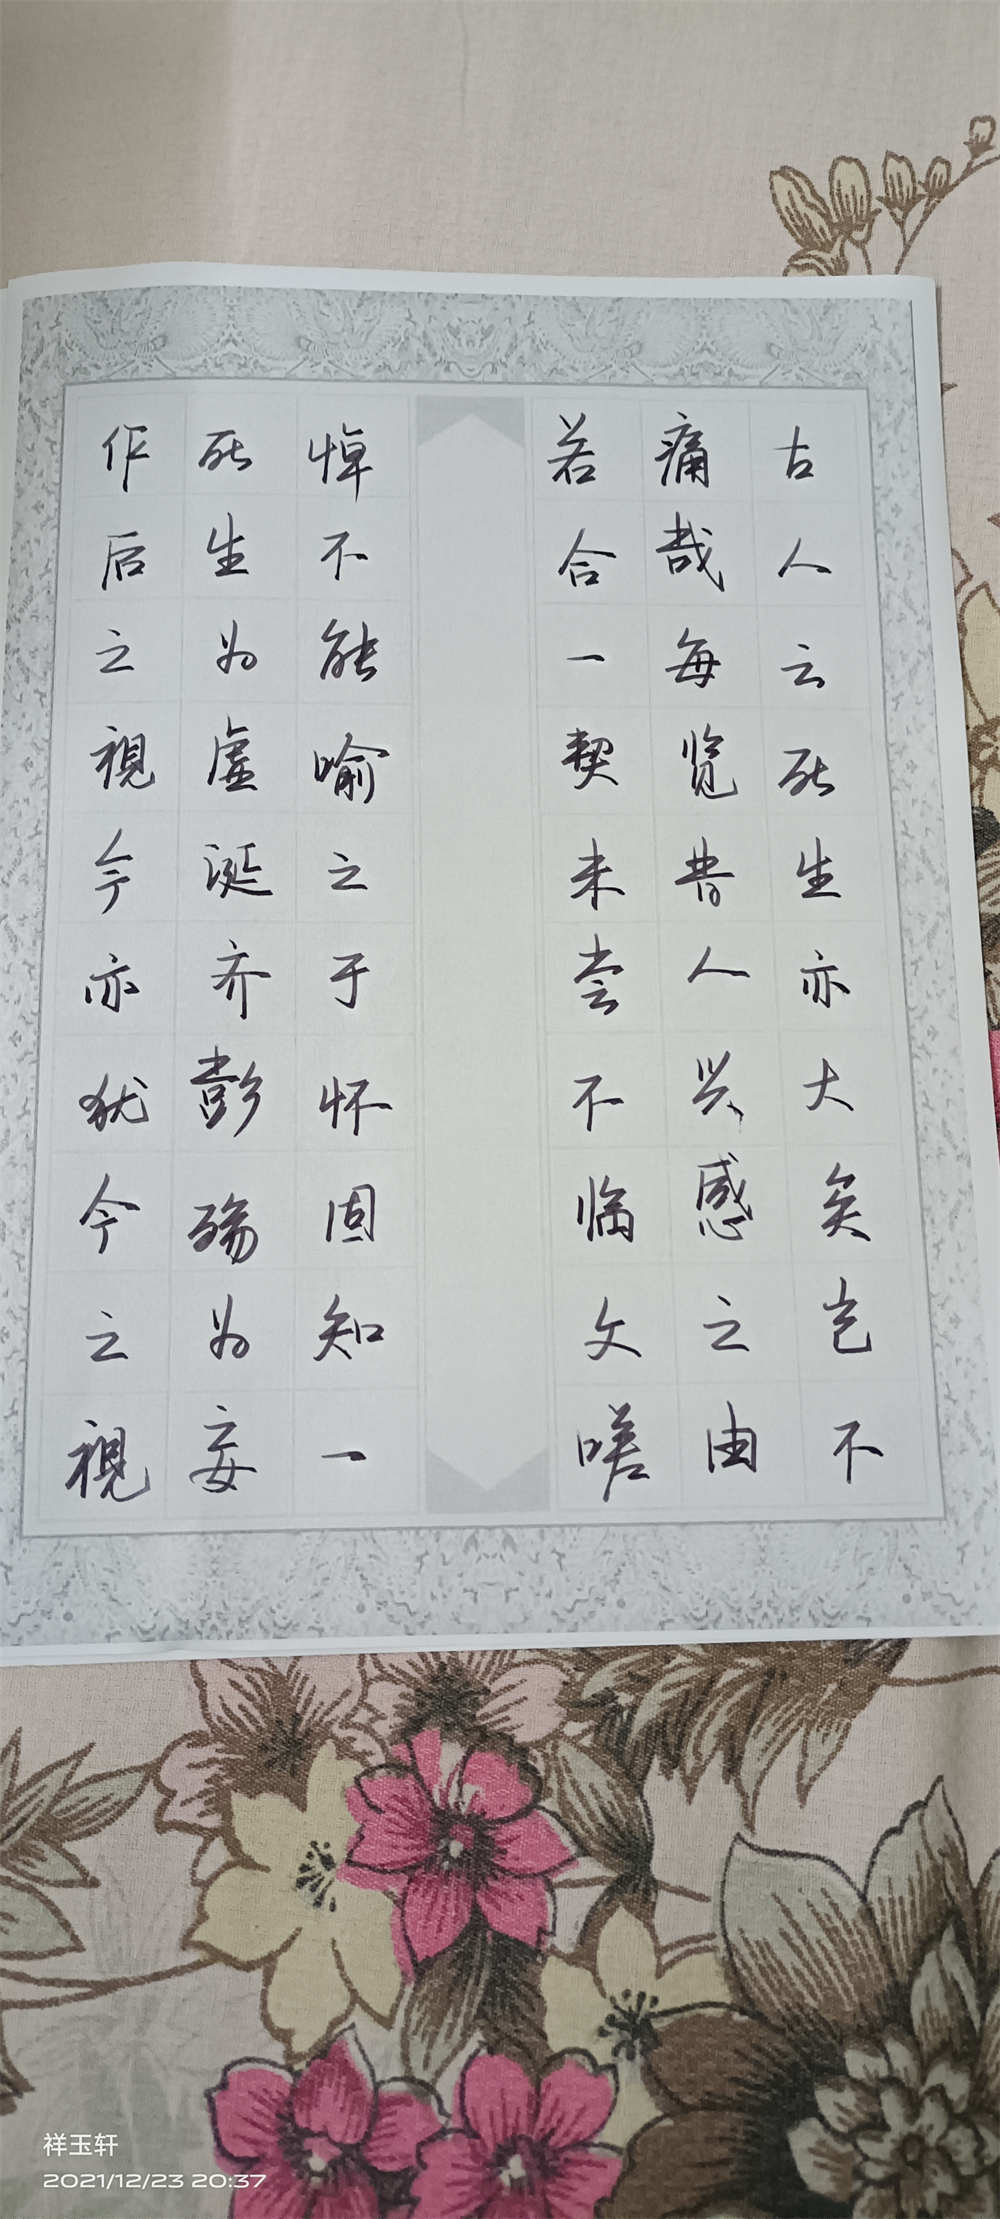 古人云死生亦大矣岂不
痛哉每览昔人兴感之由
若合一契未尝不临文嗟
悼不能喻之于怀固知一
死生为虚诞齐彭殇为妄
作后之視今亦犹今之視
祥玉轩
2021/12/23 20:37